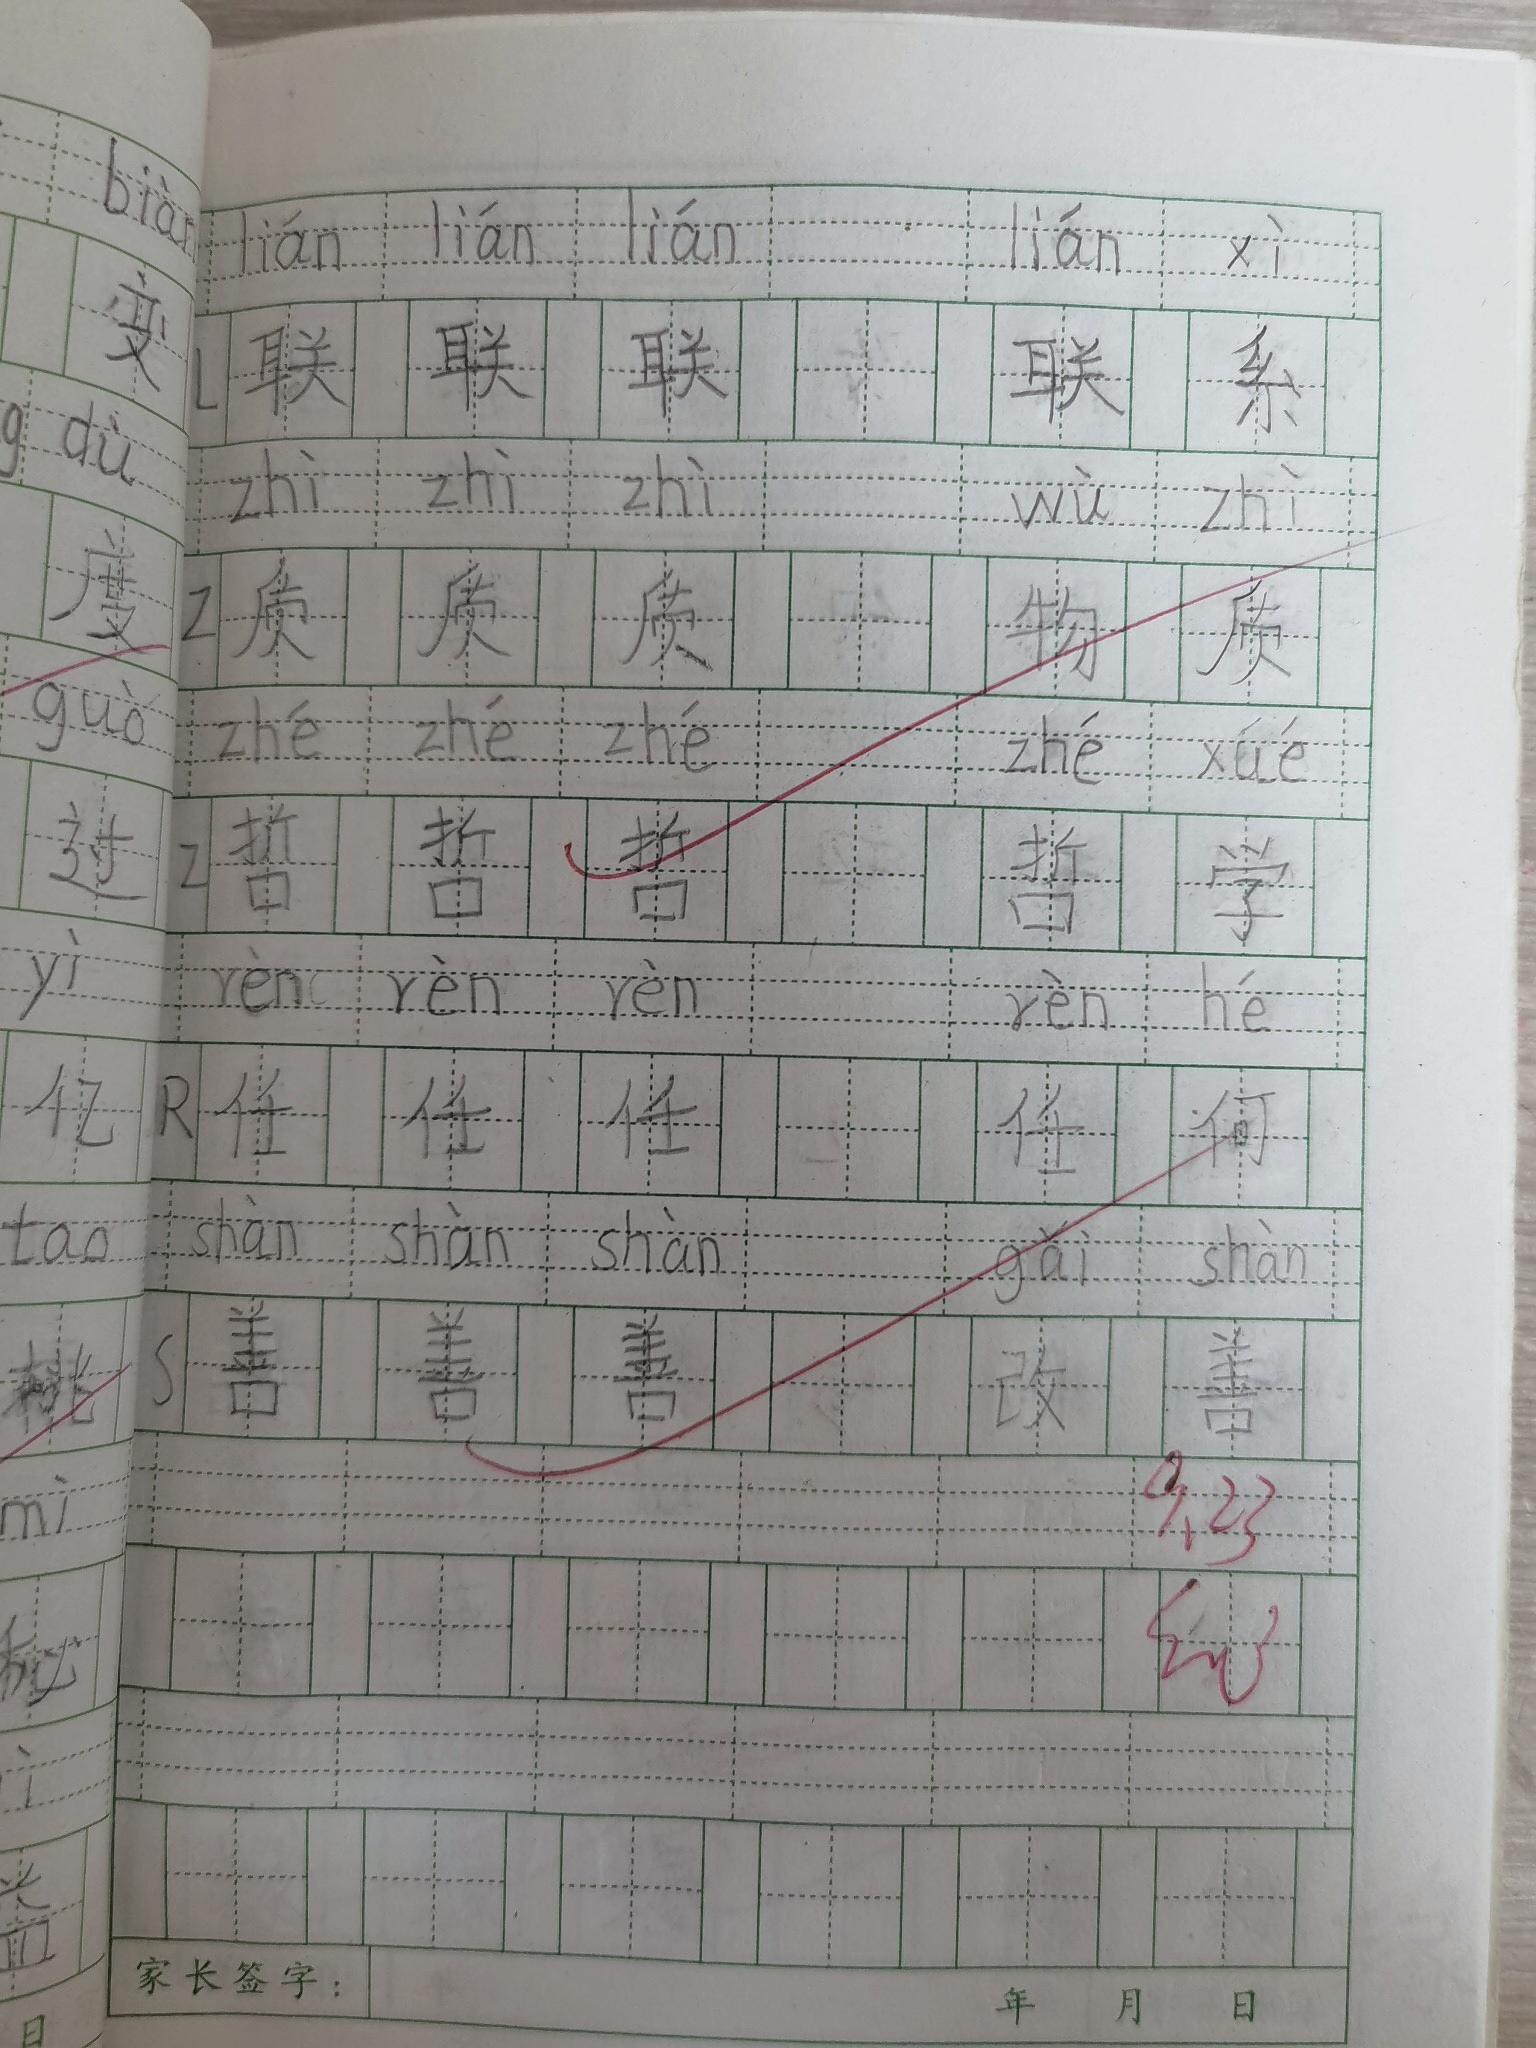 biàn
变
g dù
度
guò
过
yì
亿
tao
桃
mì
秘
ì
益
日
lián lián lián lián xì
L 联 联 联 联 系
zhì zhì zhì wù zhì
Z 质 质 质 物 质
zhé zhé zhé zhé xúé
Z 哲 哲 哲 哲 学
rèn rèn rèn rèn hé
R 任 任 任 任 何
shàn shàn shàn gǎi shàn
S 善 善 善 改 善
9.23
家长签字：
年 月 日